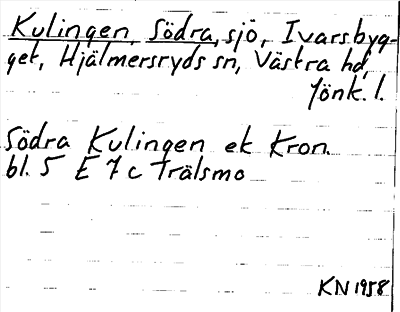 Kulingen, Södra, sjö, Ivarsbyg-
get, Hjälmersryds sn, Västra hd,
Jönk. l.
Södra Kulingen ek Kron.
bl. 5 E 7 c Trälsmo
KN 1958